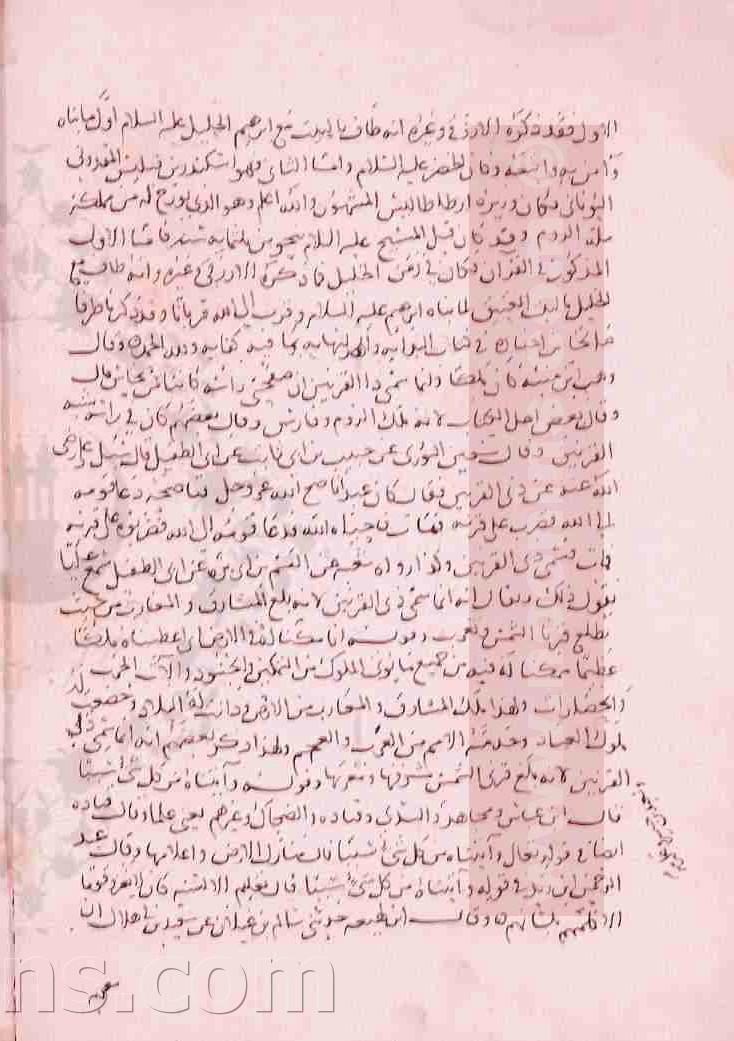 الاول فقد ذكره الازرقي وغيره انه طاف بالبيت مع ابرهيم الخليل عليه السلام اول ما بناه
وآمن به واتبعه وكان الخضر عليه السلام واما الثاني فهو اسكندر بن فيلبس المقدوني
اليوناني وكان وزيره ارطاطاليس المشهور والله اعلم وهو الذي يورخ له من مملكته
ملة الروم وقد كان قبل المسيح عليه السلام بنحو من ثلثمايه سنة فاما الاول
المذكور في القرآن فكان في زمن الخليل كما ذكره الازرقي وغيره وانه طاف مع
الخليل بالبيت العتيق لما بناه ابرهيم عليه السلام وقرب الى الله قربانا وقد ذكرنا طرفا
صالحا من اخباره في كتاب البدايه والنهايه بما فيه كفايه ولله الحمد وقال
وهب ابن منبه كان ملكا وانما سمي ذا القرنين ان صفحتي راسه كانتا من نحاس قال
وقال بعض اهل الكتاب لانه ملك الروم وفارس وقال بعضهم كان في راسه شبه
القرنين وقال سفين الثوري عن حبيب بن ابي ثابت عن ابي الطفيل قال سئل علي رضي
الله عنه عن ذي القرنين فقال كان عبدا ناصح الله عز وجل فناصحه دعا قومه
الى الله فضرب على قرنه فمات فاحياه الله فدعا قومه الى الله فضربوه على قرنه
فمات فسمي ذي القرنين وكذا رواه شعبه عن القسم بن ابي بزه عن ابي الطفيل سمع عليا
يقول ذلك ويقال انه انما سمي ذي القرنين لانه بلغ المشارق والمغارب من حيث
يطلع قرن الشمس ويغرب وقوله انا مكنا له في الارض اي اعطيناه ملكا
عظيما مكنا له فيه من جميع ما يوتى الملوك من التمكين والجنود والآت الحرب
والحصارات ولهذا ملك المشارق والمغارب من الارض ودانت له البلاد وخضعت له
ملوك العباد وخدمته الامم من العرب والعجم ولهذا ذكر بعضهم انه انما سمي ذي
القرنين لانه بلغ قرني الشمس مشرقها ومغربها وقوله وآتيناه من كل شئ سببا
قال ابن عباس ومجاهد والسدي وقتاده والضحاك وغيرهم يعني علما وقال قتاده
ايضا في قوله تعالى وآتيناه من كل شئ سببا قال منازل الارض واعلامها وقال عبد
الرحمن ابن زيد في قوله وآتيناه من كل شئ سببا قال تعليم الالسنه كان لا يغزو قوما
الا كلمهم بلسانهم وقال ابن لهيعه حدثني سالم بن غيلان عن سعيد بن ابي هلال ان
ns.com